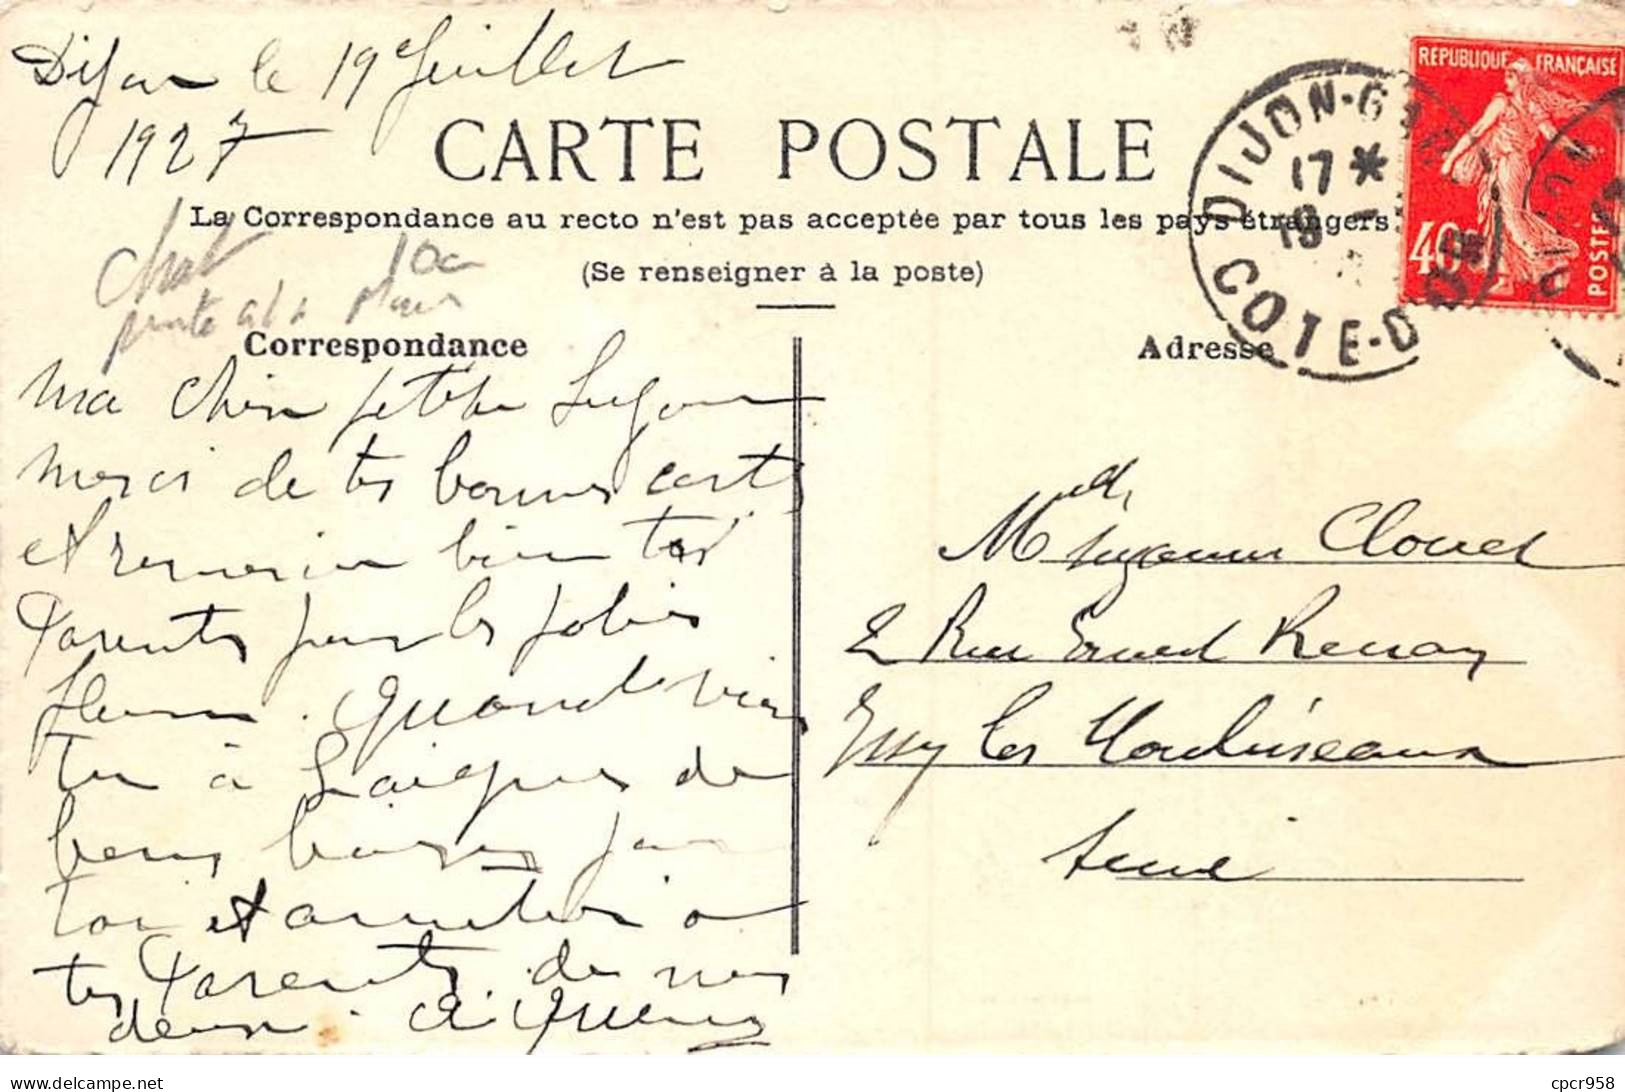 Dijon le 19 Juillet
1927
CARTE POSTALE
La Correspondance au recto n'est pas acceptée par tous les pays étrangers
(Se renseigner à la poste)
REPUBLIQUE FRANÇAISE
40c
POSTES
DIJON-GARE
17 *
19
COTE-D'OR
Chat
10c
Correspondance
Adresse
Ma chère petite Suzanne
merci de tes bonnes cartes
et remercie bien tes
Parents pour les jolies
fleurs. Quand viens
tu à Laignes de
bons baisers pour
toi et amitiés a
tes Parents de nous
deux.
Melle Suzanne Clouet
2 Rue Ernest Renan
Issy les Moulineaux
Seine
cpcr958